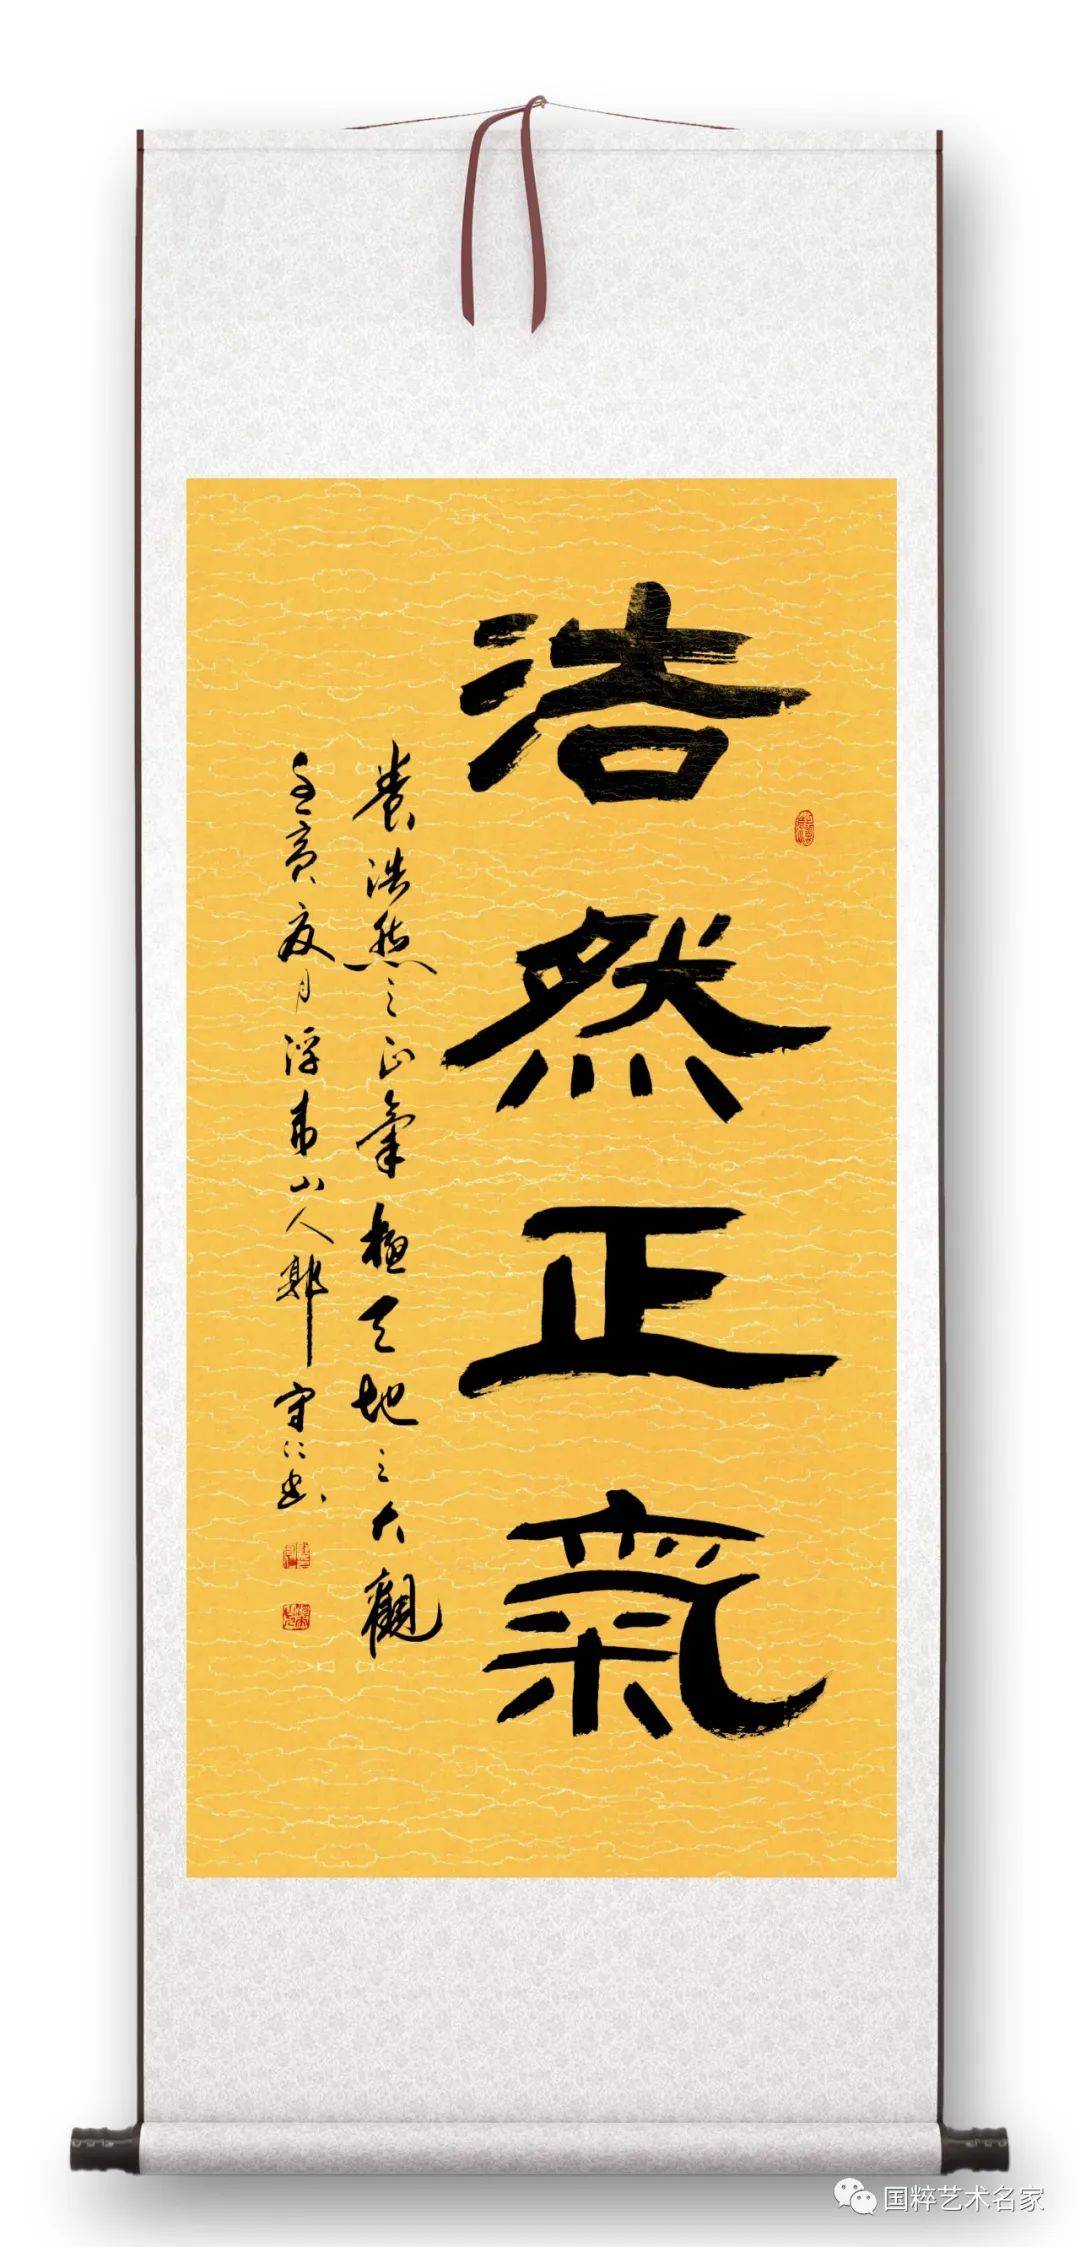 浩然正氣
養浩然之正氣極天地之大觀
壬寅夏月浮来山人守仁书
国粹艺术名家